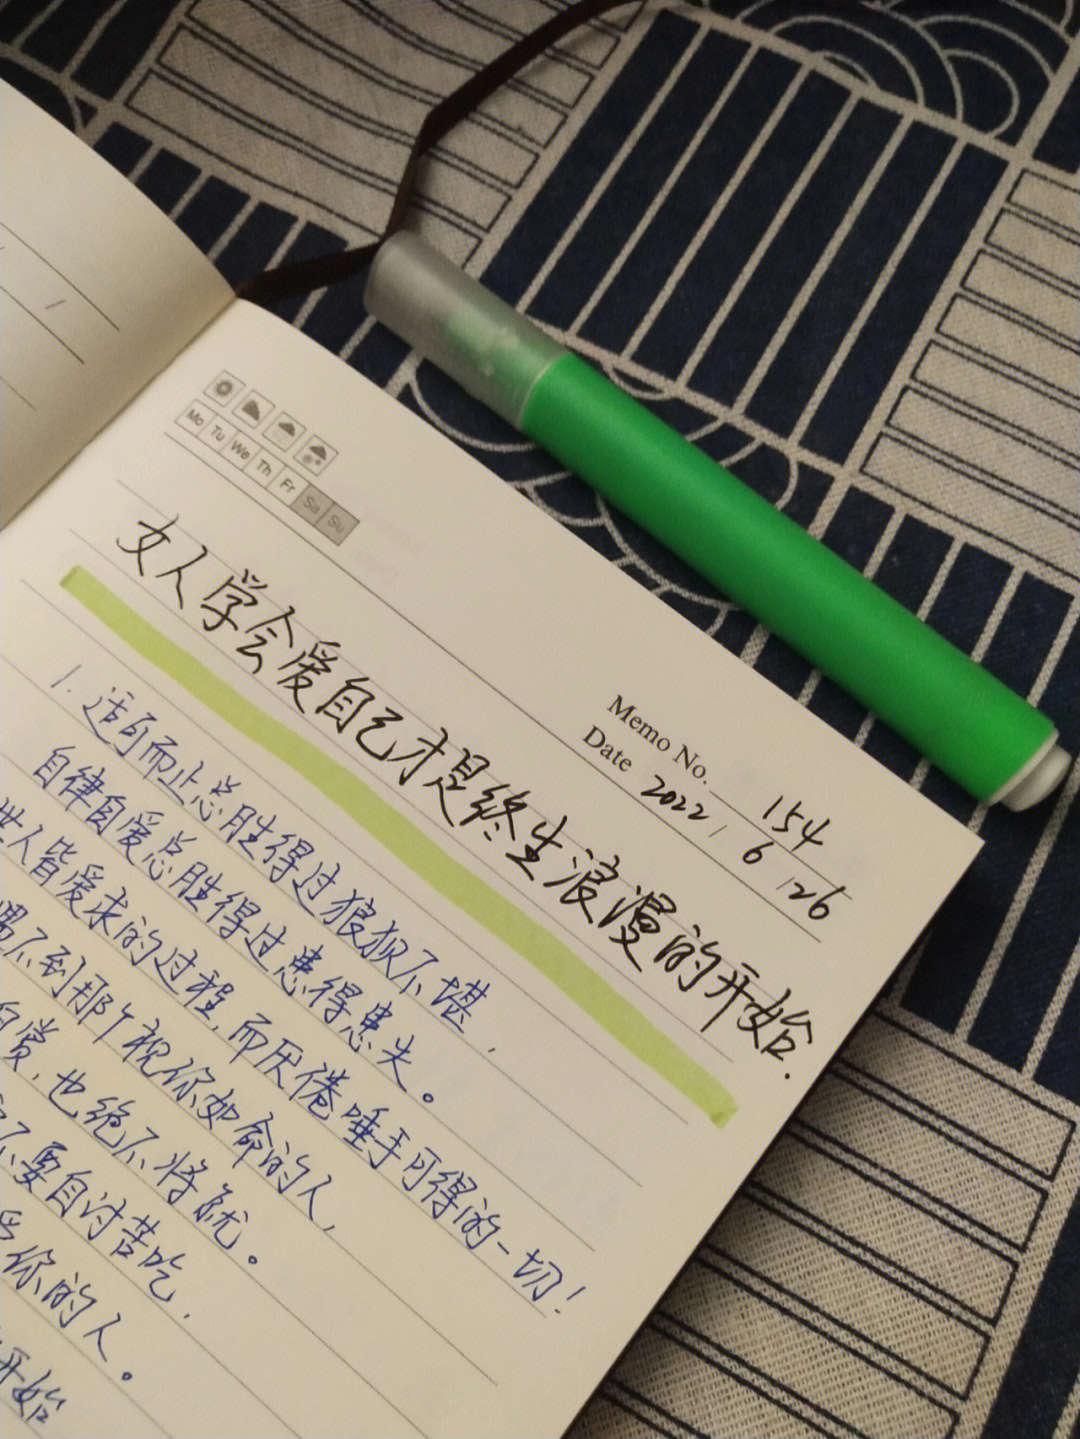 Mo Tu We Th Fr Sa Su
Memo No. 154
Date 2022 / 6 / 26
女人学会爱自己才是终生浪漫的开始.
1. 适可而止总胜得过狼狈不堪,
自律自爱总胜得过患得患失。
世人皆爱求的过程,而厌倦唾手可得的一切!
遇不到那个视你如命的人,
自赏,也绝不将就。
不要自讨苦吃,
爱你的人。
开始